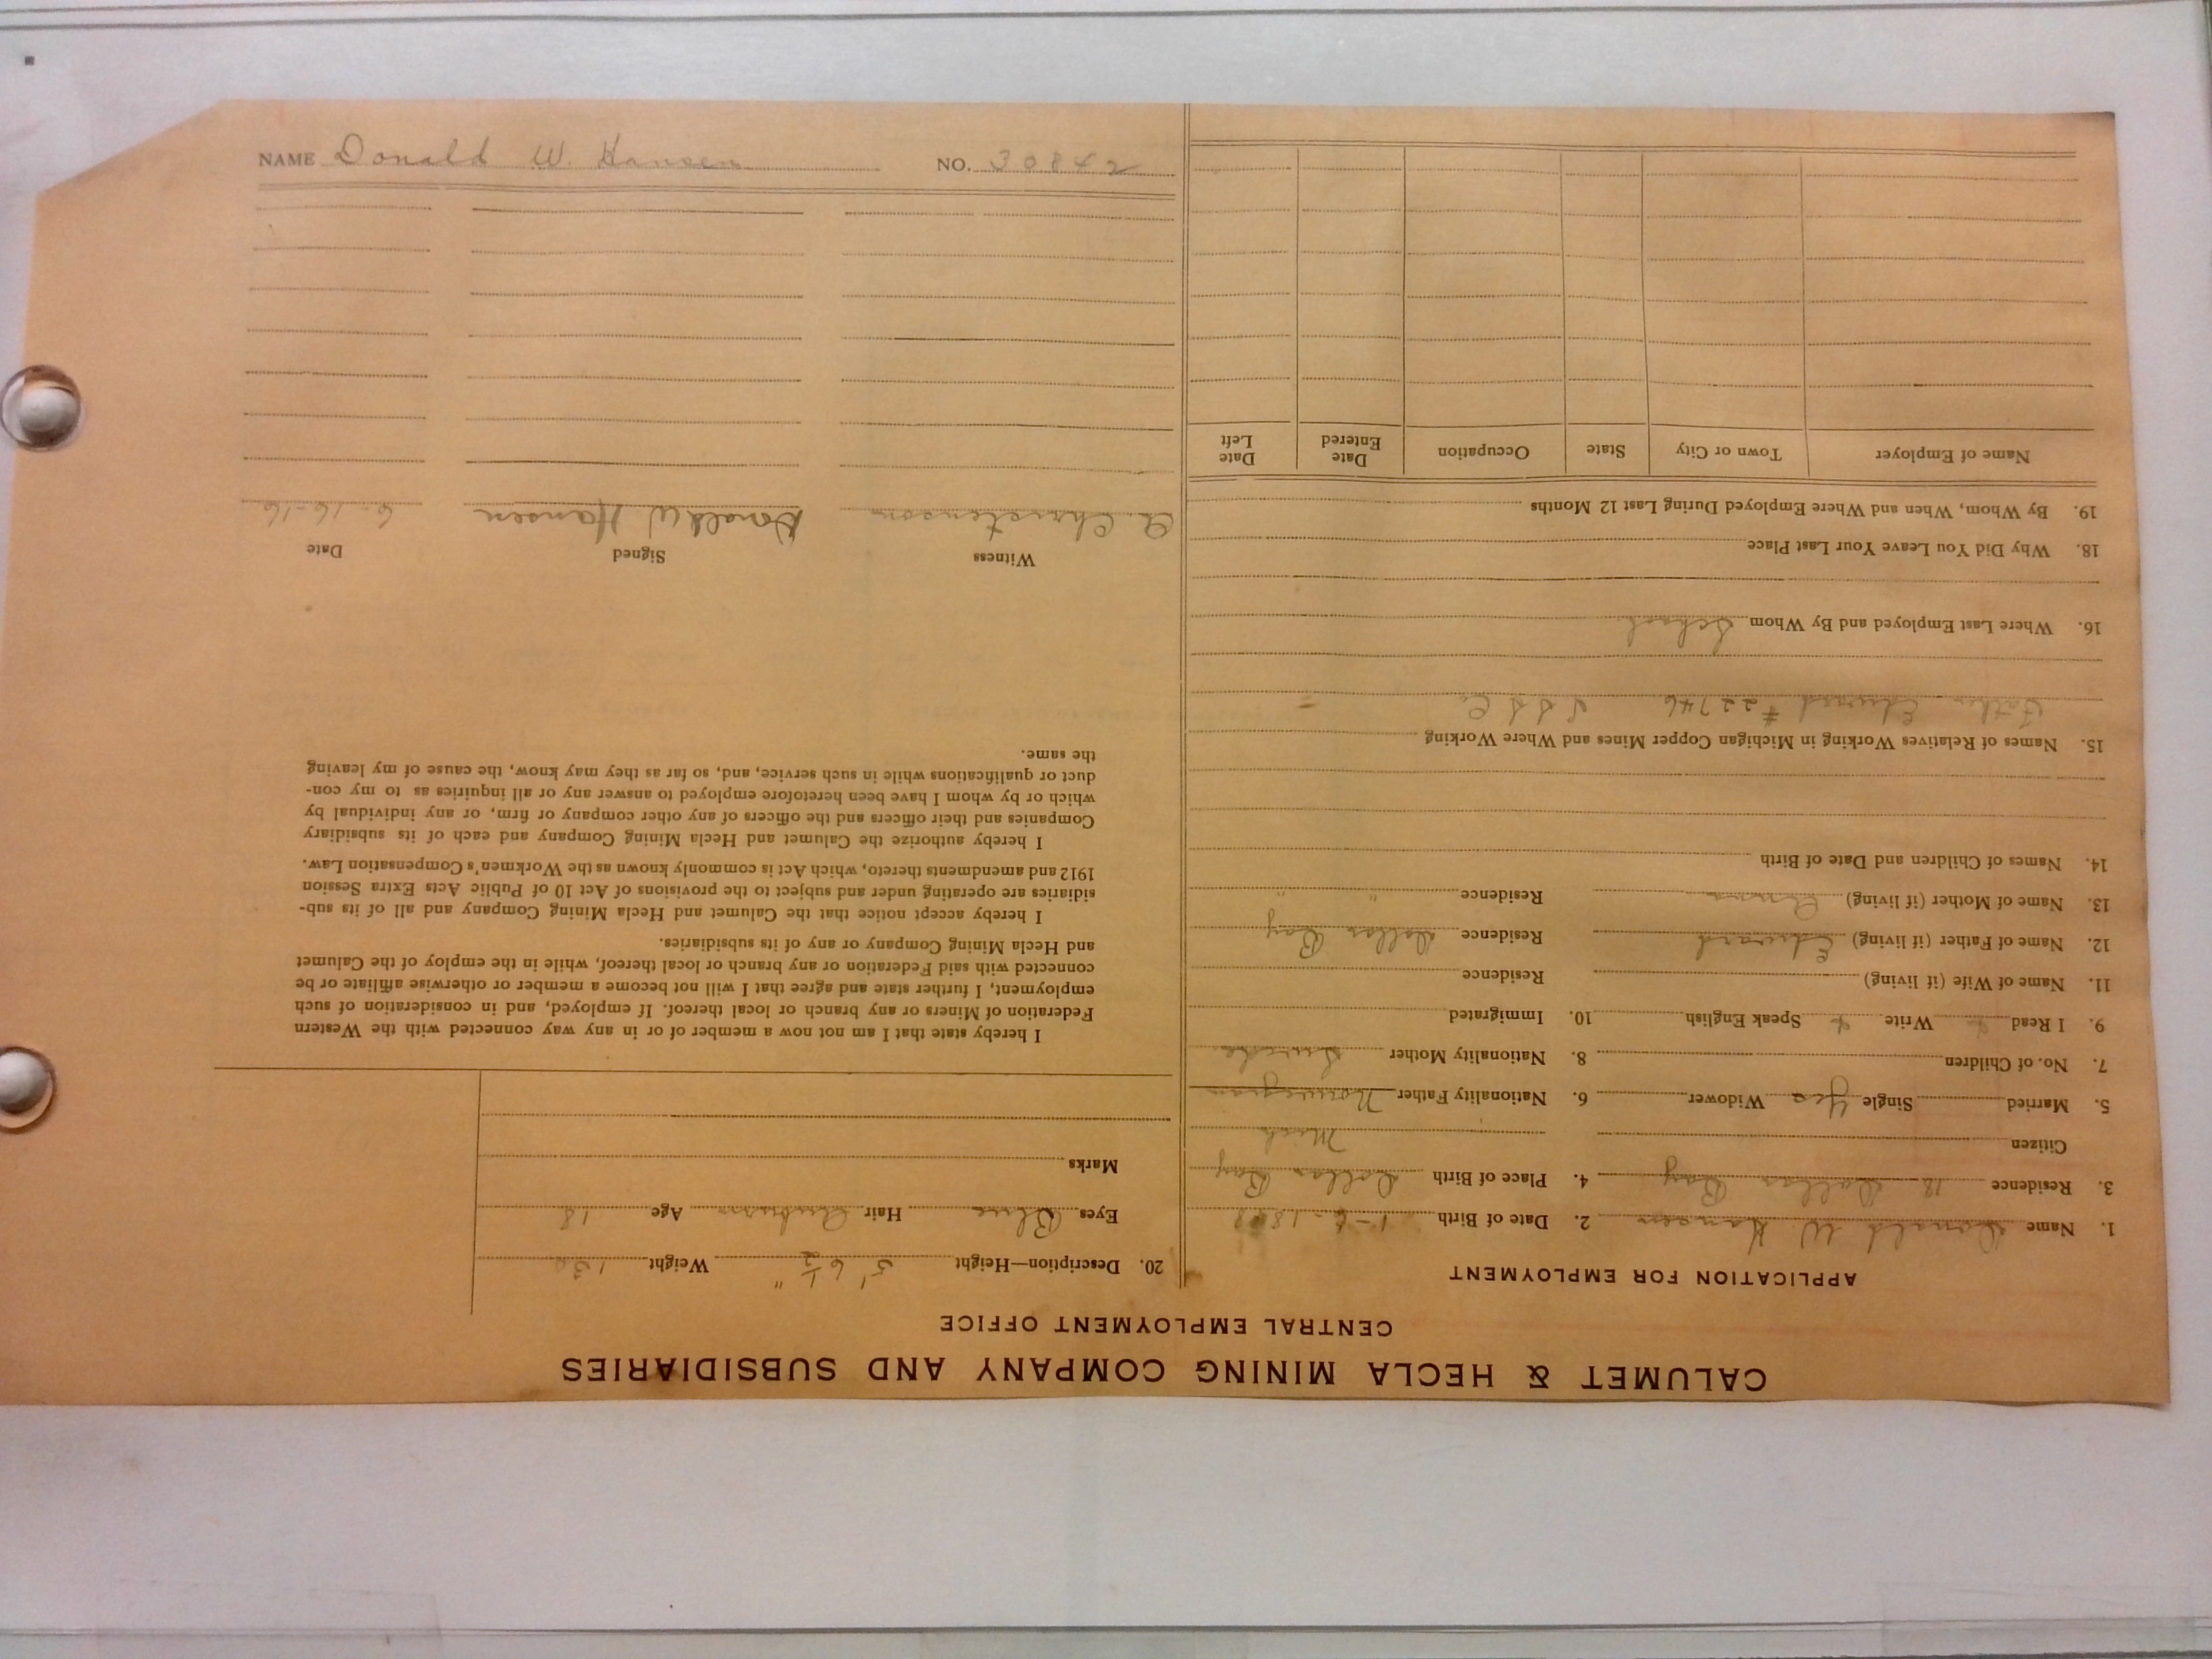 CALUMET & HECLA MINING COMPANY AND SUBSIDIARIES
CENTRAL EMPLOYMENT OFFICE
APPLICATION FOR EMPLOYMENT
1. Name Donald W. Hansen 2. Date of Birth
3. Residence 18 Dollar Bay 4. Place of Birth Dollar Bay
Citizen Mich
5. Married Single Yes Widower 6. Nationality Father Norwegian
7. No. of Children 8. Nationality Mother Swede
9. I Read Write Speak English 10. Immigrated
11. Name of Wife (if living) Residence
12. Name of Father (if living) Edward Residence Dollar Bay
13. Name of Mother (if living) Anna Residence " "
14. Names of Children and Date of Birth
15. Names of Relatives Working in Michigan Copper Mines and Where Working
Father Edward #22746 Co
16. Where Last Employed and By Whom School
18. Why Did You Leave Your Last Place
19. By Whom, When and Where Employed During Last 12 Months
Name of Employer Town or City State Occupation Date Entered Date Left
20. Description—Height 5' 6 1/2" Weight 130
Eyes Blue Hair Auburn Age 18
Marks
I hereby state that I am not now a member of or in any way connected with the Western
Federation of Miners or any branch or local thereof. If employed, and in consideration of such
employment, I further state and agree that I will not become a member or otherwise affiliate or be
connected with said Federation or any branch or local thereof, while in the employ of the Calumet
and Hecla Mining Company or any of its subsidiaries.
I hereby accept notice that the Calumet and Hecla Mining Company and all of its sub-
sidiaries are operating under and subject to the provisions of Act 10 of Public Acts Extra Session
1912 and amendments thereto, which Act is commonly known as the Workmen's Compensation Law.
I hereby authorize the Calumet and Hecla Mining Company and each of its subsidiary
Companies and their officers and the officers of any other company or firm, or any individual by
which or by whom I have been heretofore employed to answer any or all inquiries as to my con-
duct or qualifications while in such service, and, so far as they may know, the cause of my leaving
the same.
Witness Signed Date
A. Christenson Donald W Hansen 6-16-16
NAME Donald W. Hansen NO. 30842